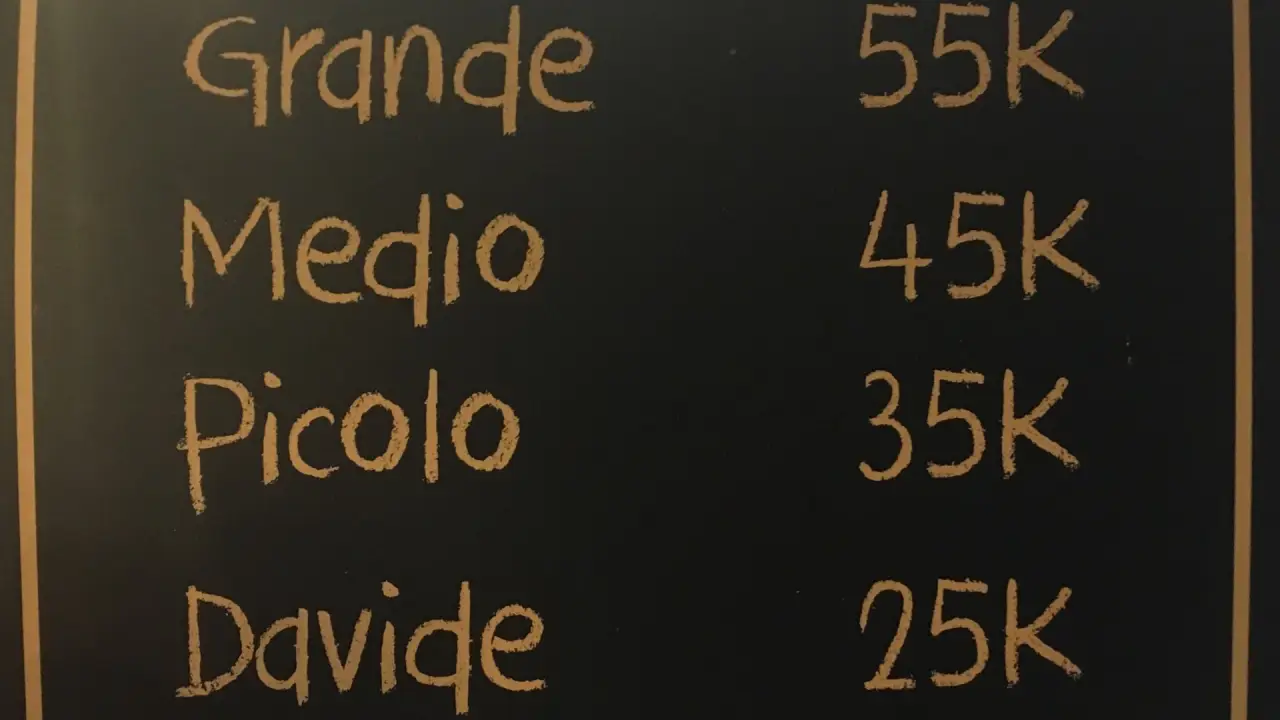 Grande 55K
Medio 45K
Picolo 35K
Davide 25K